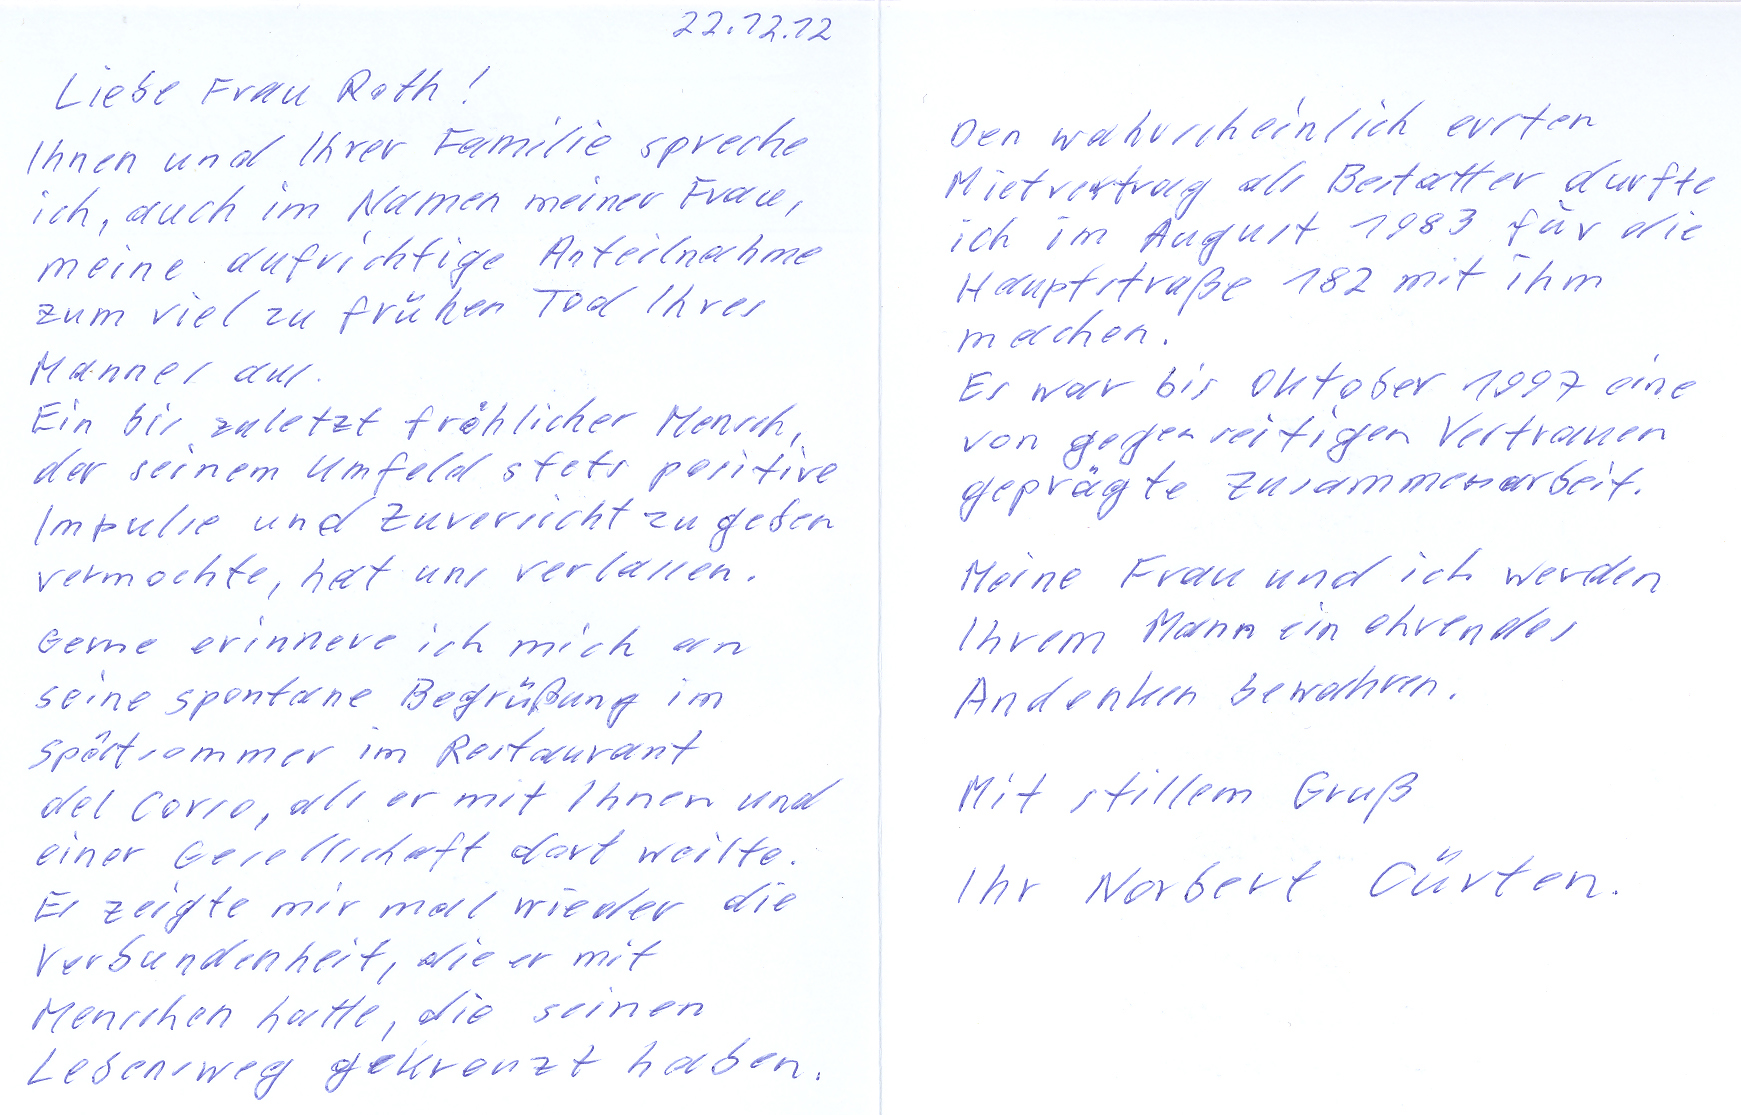 22.12.12
Liebe Frau Roth!
Ihnen und Ihrer Familie spreche
ich, auch im Namen meiner Frau,
meine aufrichtige Anteilnahme
zum viel zu frühen Tod Ihres
Mannes aus.
Ein bis zuletzt fröhlicher Mensch,
der seinem Umfeld stets positive
Impulse und Zuversicht zu geben
vermochte, hat uns verlassen.
Gerne erinnere ich mich an
seine spontane Begrüßung im
Spätsommer im Restaurant
del Corso, als er mit Ihnen und
einer Gesellschaft dort weilte.
Es zeigte mir mal wieder die
Verbundenheit, die er mit
Menschen hatte, die seinen
Lebensweg gekreuzt haben.
Den wahrscheinlich ersten
Mietvertrag als Bestatter durfte
ich im August 1983 für die
Hauptstraße 182 mit ihm
machen.
Es war bis Oktober 1997 eine
von gegenseitigen Vertrauen
geprägte Zusammenarbeit.
Meine Frau und ich werden
Ihrem Mann ein ehrendes
Andenken bewahren.
Mit stillem Gruß
Ihr Norbert Cürten.